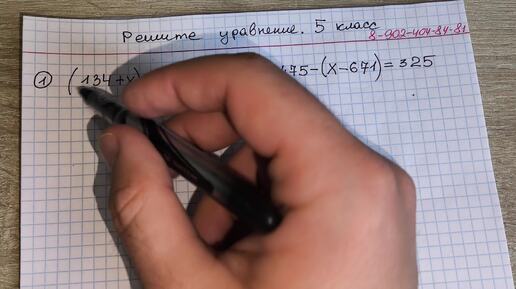 Решите уравнение. 5 класс
8-902-404-84-81
① (134+x) 475-(x-671)=325